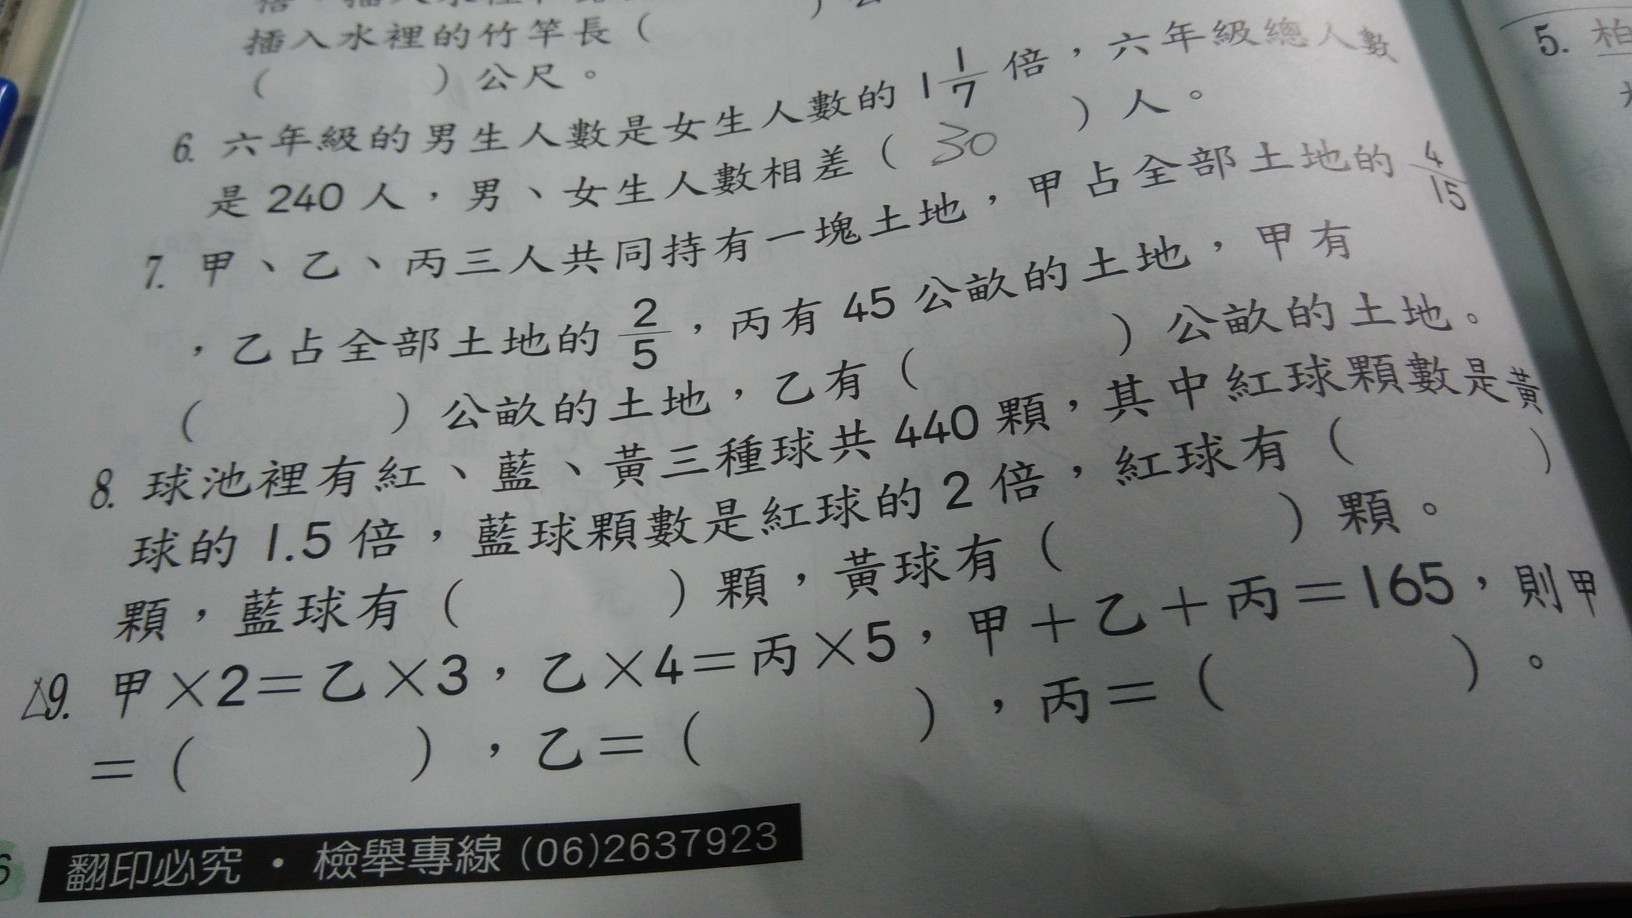 插入水裡的竹竿長(
( )公尺。
6. 六年級的男生人數是女生人數的 1 1/7 倍,六年級總人數
是 240 人,男、女生人數相差( 30 )人。
7. 甲、乙、丙三人共同持有一塊土地,甲占全部土地的 4/15
,乙占全部土地的 2/5,丙有 45 公畝的土地,甲有
( )公畝的土地,乙有( )公畝的土地。
8. 球池裡有紅、藍、黃三種球共 440 顆,其中紅球顆數是黃
球的 1.5 倍,藍球顆數是紅球的 2 倍,紅球有( )
顆,藍球有( )顆,黃球有( )顆。
△9. 甲×2=乙×3,乙×4=丙×5,甲+乙+丙=165,則甲
=( ),乙=( ),丙=( )。
6 翻印必究・檢舉專線 (06)2637923
5. 柏